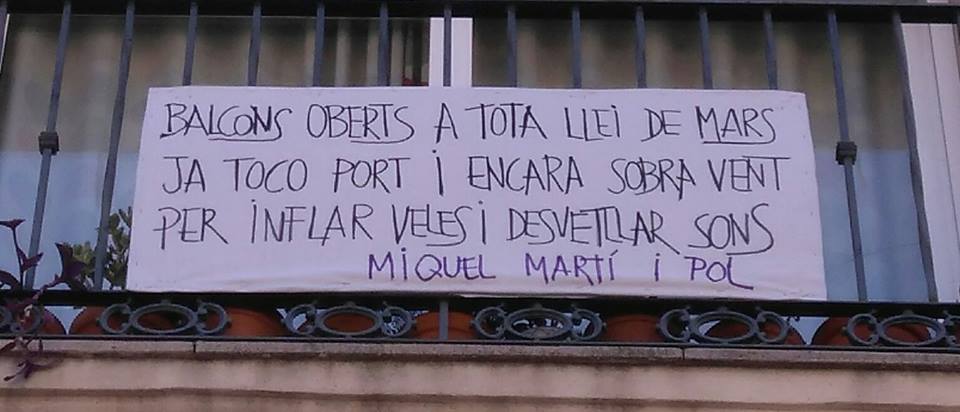 BALCONS OBERTS A TOTA LLEI DE MARS
JA TOCO PORT i ENCARA SOBRA VENT
PER INFLAR VELES i DESVETLLAR SONS
MIQUEL MARTÍ i POL